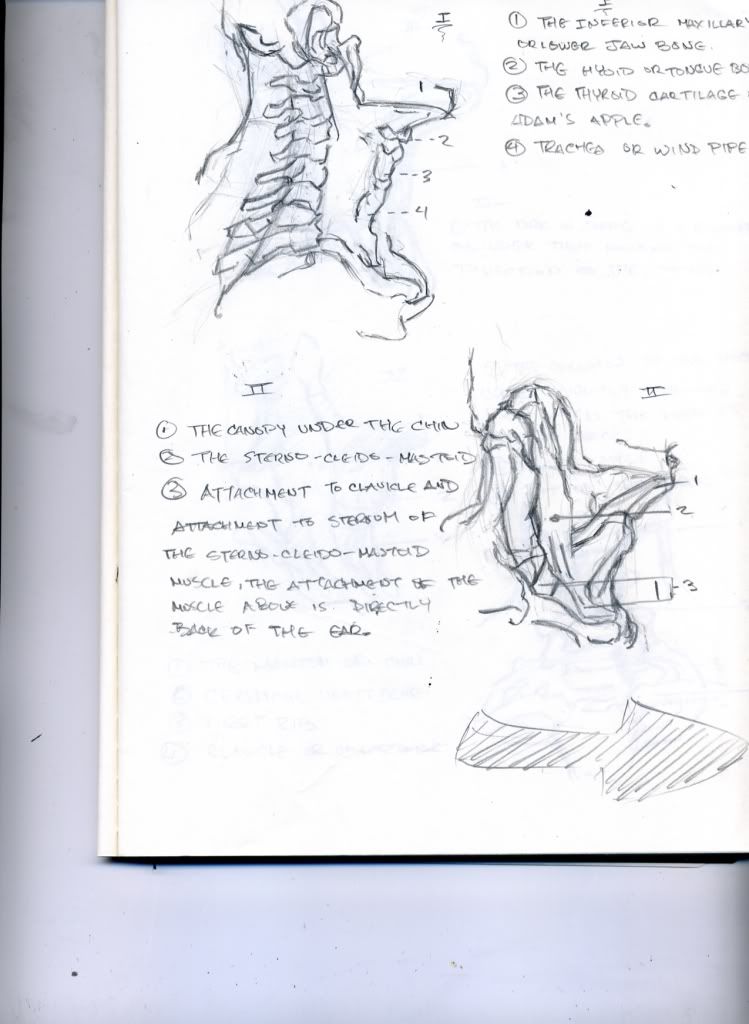 I
I
① THE INFERIOR MAXILLAR
OR LOWER JAW BONE.
② THE HYOID OR TONGUE BO
③ THE THYROID CARTILAGE
ADAM'S APPLE.
④ TRACHEA OR WIND PIPE
1
2
3
4
II
① THE CANOPY UNDER THE CHIN
② THE STERNO-CLEIDO-MASTOID
③ ATTACHMENT TO CLAVICLE AND
ATTACHMENT TO STERNUM OF
THE STERNO-CLEIDO-MASTOID
MUSCLE, THE ATTACHMENT OF THE
MUSCLE ABOVE IS DIRECTLY
BACK OF THE EAR.
II
1
2
3